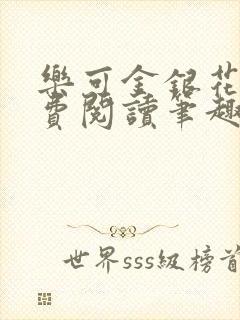 樂可金銀花
費閱讀筆趣
世界sss級榜首